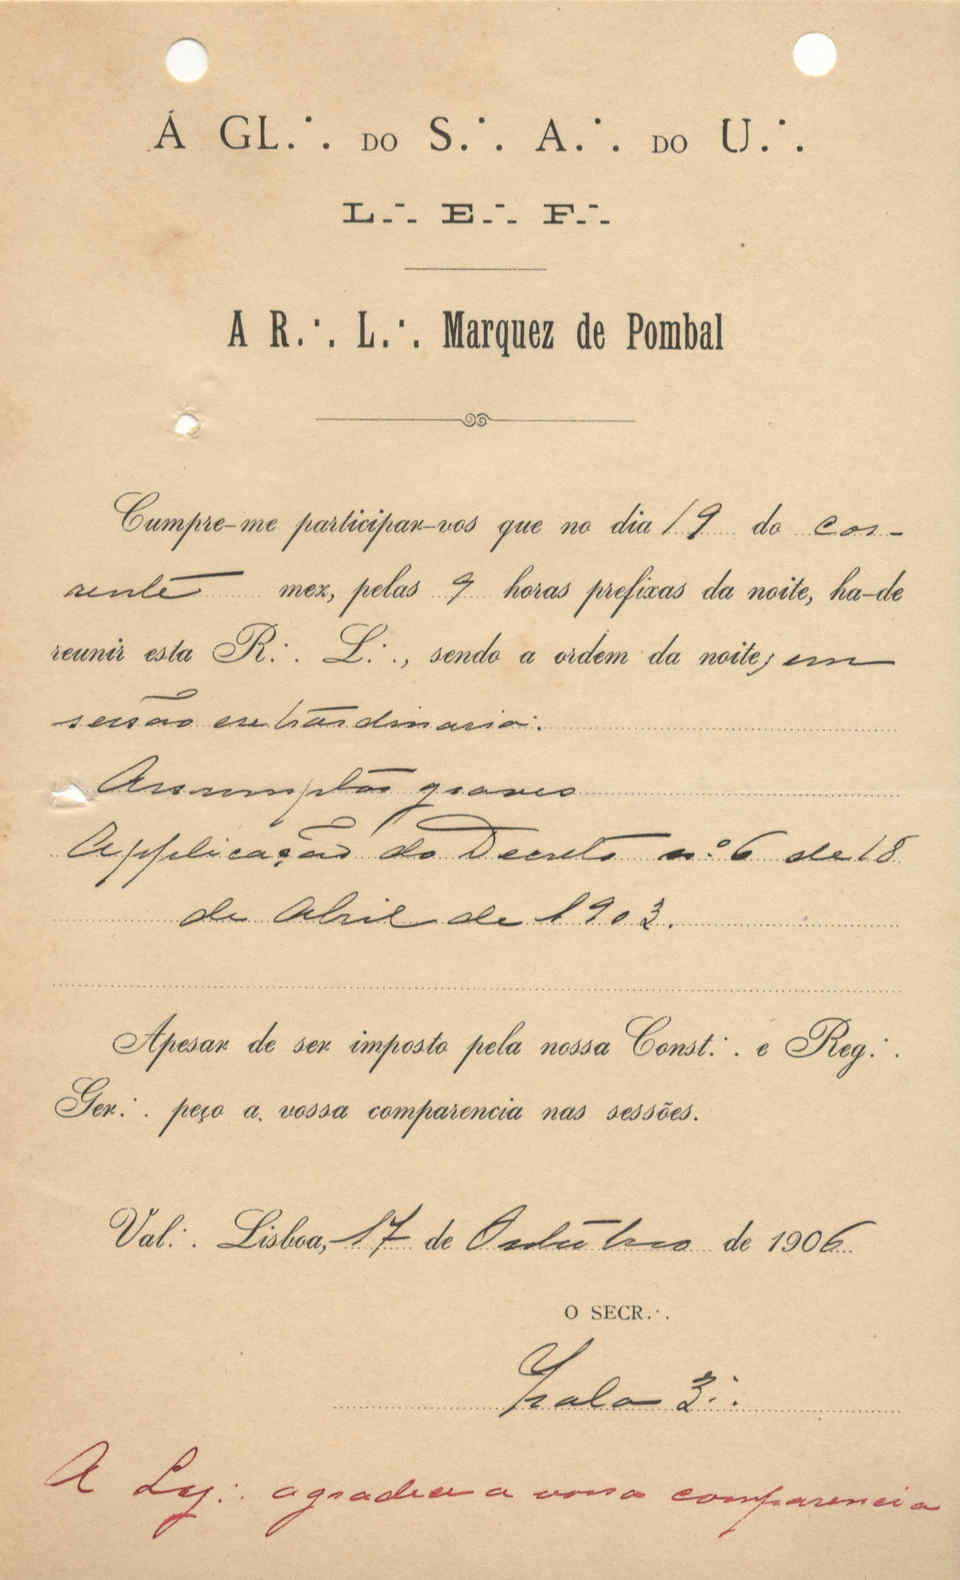 Á GL.·. DO S.·. A.·. DO U.·.
L.·. E.·. F.·.
A R.·. L.·. Marquez de Pombal
Cumpre-me participar-vos que no dia 19 do cor-
rente mez, pelas 9 horas prefixas da noite, ha-de
reunir esta R.·. L.·., sendo a ordem da noite; em
sessão extraordinaria:
Assumptos graves
Applicação do Decreto n.º 6 de 18
de Abril de 1903.
Apesar de ser imposto pela nossa Const.·. e Reg.·.
Ger.·. peço a vossa comparencia nas sessões.
Val.·. Lisboa, 17 de Outubro de 1906
O SECR.·.
3.·.
A Log.·. agradece a vossa comparencia